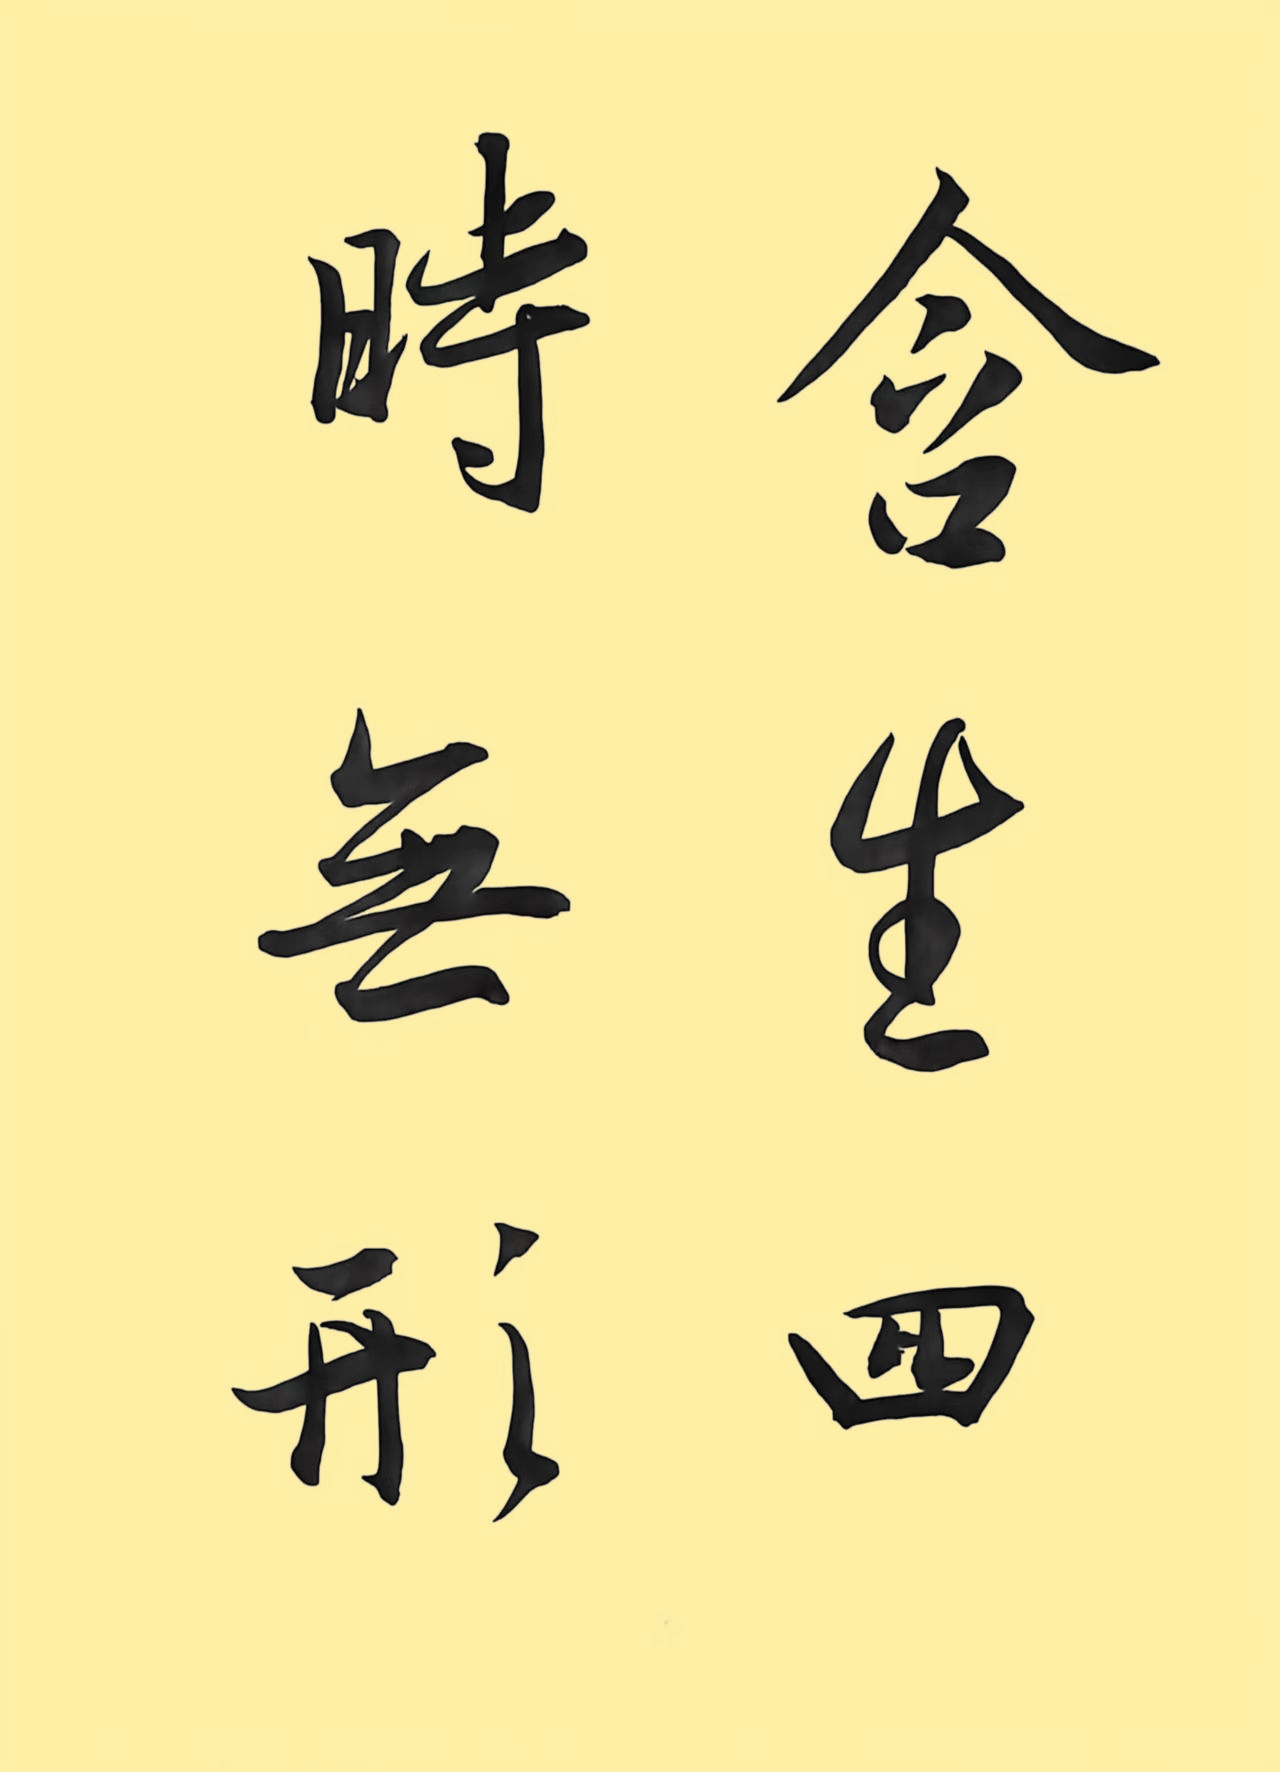 含生四
時無形